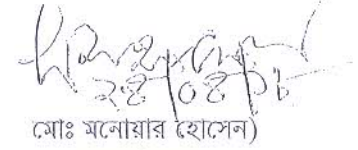 ২৪/০৪/১৮
মোঃ মনোয়ার হোসেন)